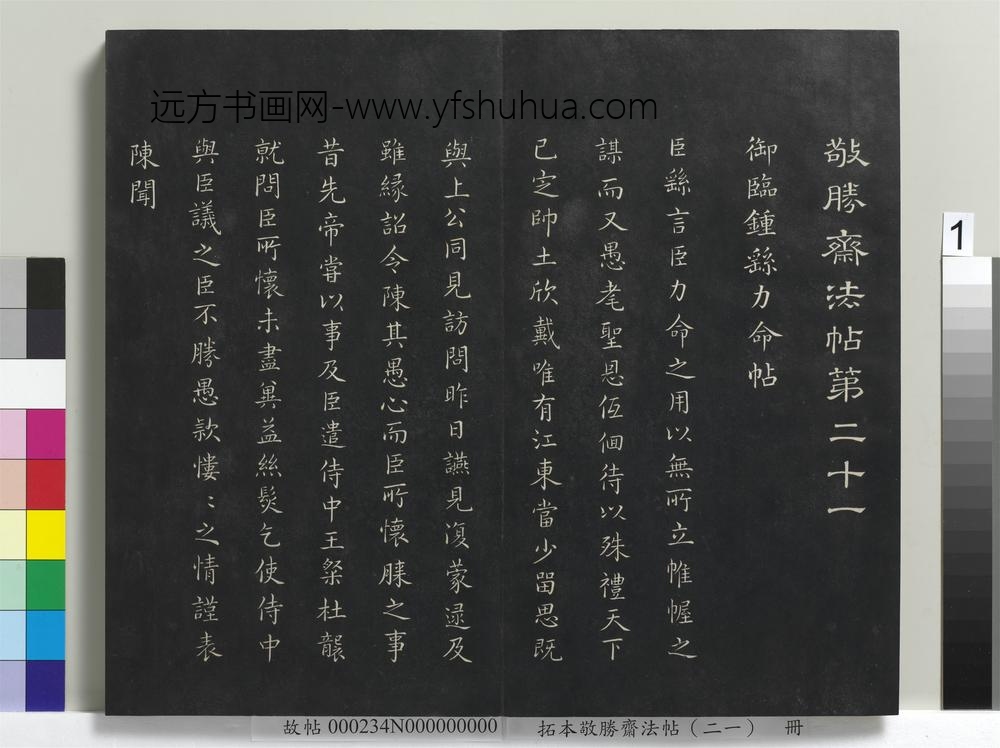 远方书画网-www.yfshuhua.com
敬勝齋法帖第二十一
御臨鍾繇力命帖
臣繇言臣力命之用以無所立帷幄之
謀而又愚耄聖恩伍佪待以殊禮天下
已定帥土欣戴唯有江東當少留思既
與上公同見訪問昨日讌見復蒙逮及
雖緣詔令陳其愚心而臣所懷牘之事
昔先帝嘗以事及臣遣侍中王粲杜襲
就問臣所懷未盡冀益絲髮乞使侍中
與臣議之臣不勝愚款慺〻之情謹表
陳聞
1
故帖 000234N000000000 拓本敬勝齋法帖(二一) 冊